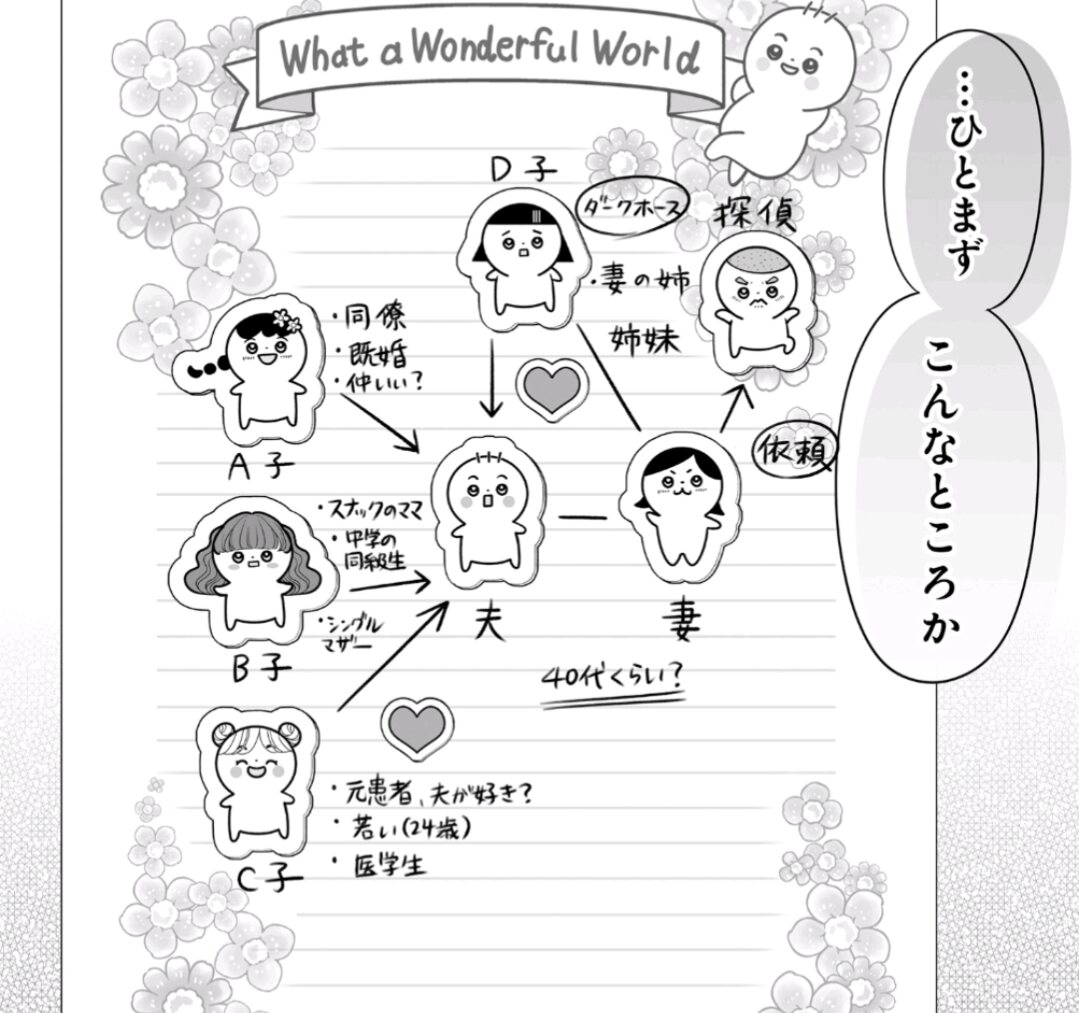 What a Wonderful World
…ひとまず
こんなところか
D子
ダークホース
・妻の姉
姉妹
探偵
依頼
・同僚
・既婚
・仲いい?
A子
・スナックのママ
・中学の
同級生
・シングル
マザー
B子
夫
妻
40代くらい?
・元患者、夫が好き?
・若い(24歳)
・医学生
C子